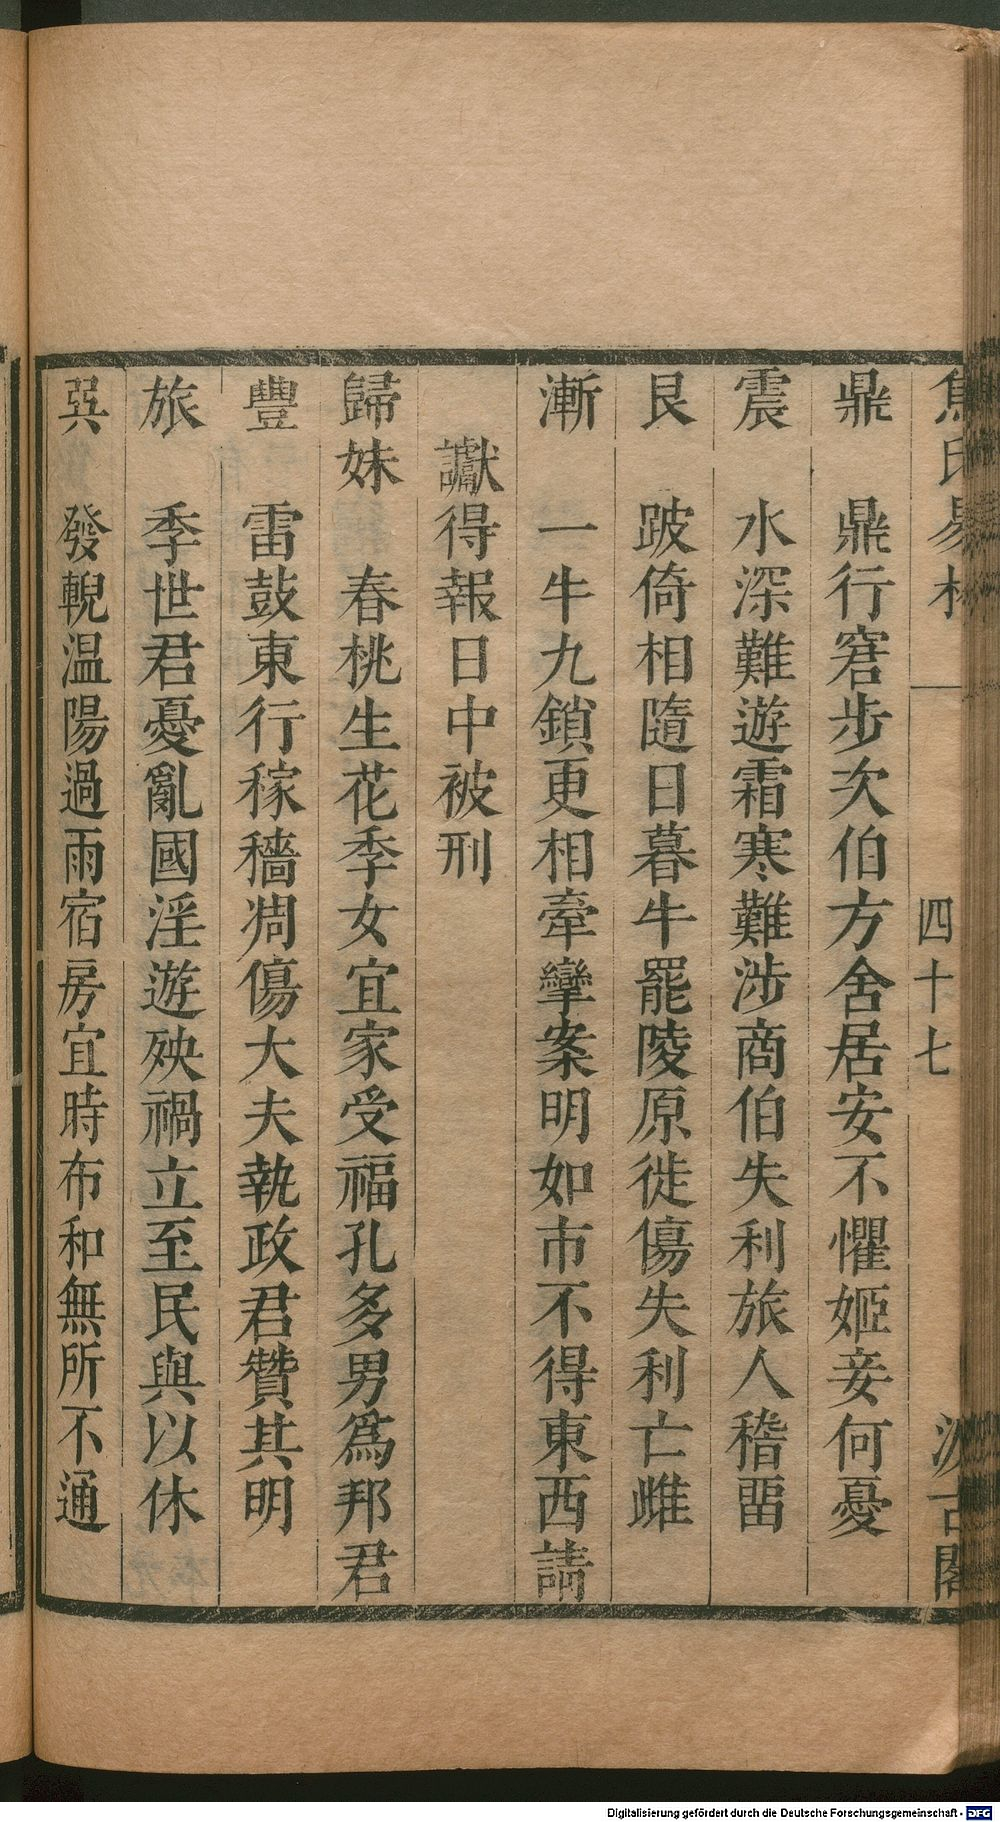 焦氏易林 一 四十七 汲古閣
鼎 鼎行窘步次伯方舍居安不懼姬妾何憂
震 水深難遊霜寒難涉商伯失利旅人稽畱
艮 跛倚相隨日暮牛罷陵原徙傷失利亡雌
漸 一牛九鎖更相牽攣案明如市不得東西請
讞得報日中被刑
歸妹 春桃生花季女宜家受福孔多男爲邦君
豐 雷鼓東行稼穡凋傷大夫執政君贊其明
旅 季世君憂亂國淫遊殃禍立至民與以休
巽 發輗溫陽過雨宿房宜時布和無所不通
Digitalisierung gefördert durch die Deutsche Forschungsgemeinschaft - DFG